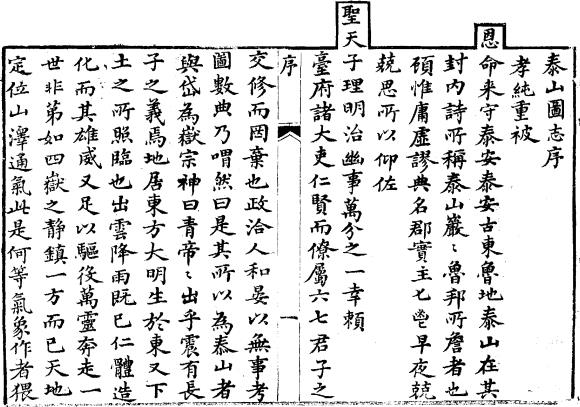 泰山圖志序
孝純重被
恩命来守泰安泰安古東魯地泰山在其
封内詩所稱泰山巖〻魯邦所詹者也
顧惟庸虚謬典名郡實主七鬯早夜兢
兢思所以仰佐
聖天子理明治幽事萬分之一幸賴
臺府諸大吏仁賢而僚屬六七君子之
序
一
交修而罔棄也政洽人和晏以無事考
圖數典乃喟然曰是其所以為泰山者
與岱為嶽宗神曰青帝〻出乎震有長
子之義焉地居東方大明生於東又下
土之所照臨也出雲降雨既已仁體造
化而其雄威又足以驅役萬靈奔走一
世非第如四嶽之静鎮一方而已天地
定位山澤通氣此是何等氣象作者猥